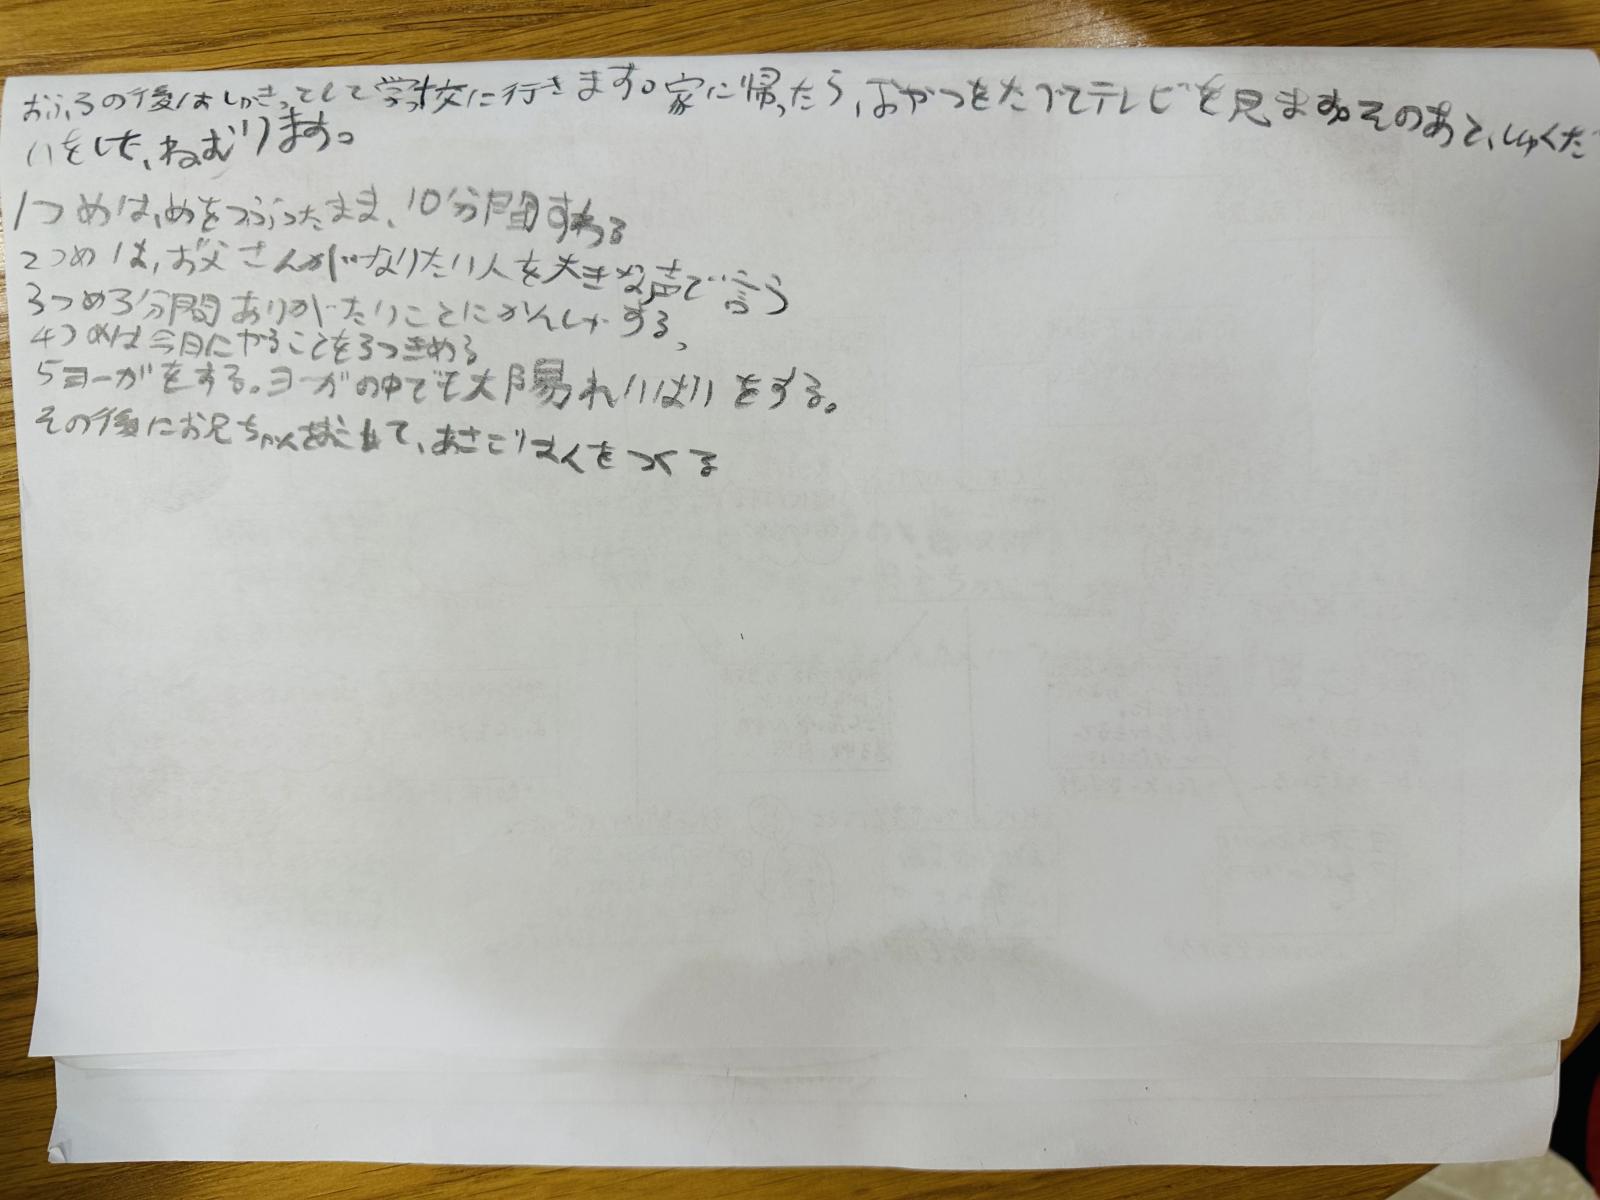 おふろの後はしゅきってして学校に行きます。家に帰ったら、おかつをたべてテレビを見ます。そのあと、しゅくだ
いをした、ねむります。
1つめは、めをつぶったまま、10分間すわる
2つめは、お父さんがなりたい人を大きな声で言う
3つめ3分間ありがたりことにかんしゃする、
4つめは今日にやることを3つきめる
5ヨーガをする。ヨーガの中でも太陽れいはいをする。
その後にお兄ちゃんをおこして、あさごはんをつくる